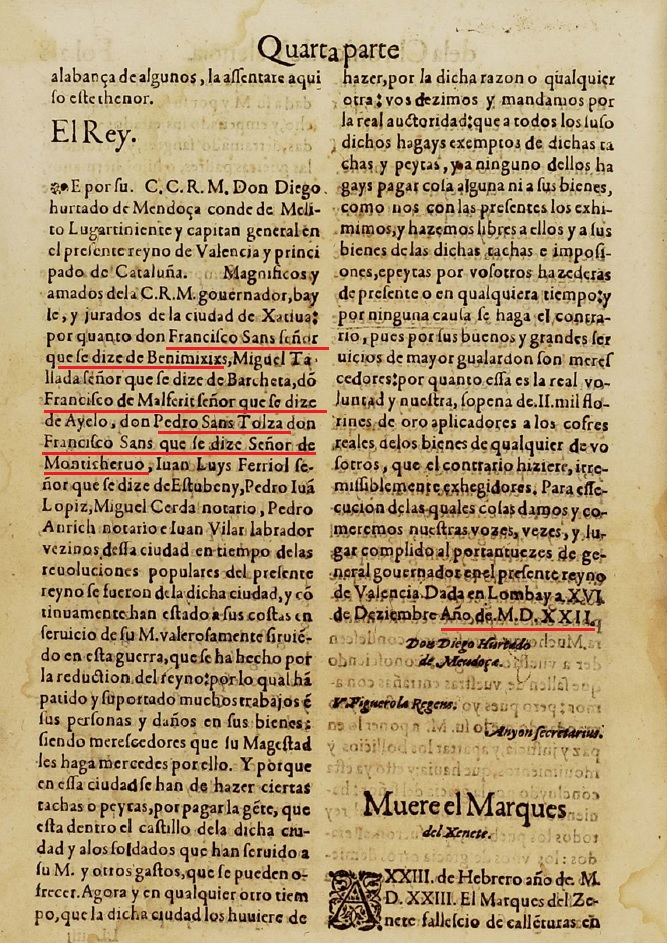 Quarta parte
alabança de algunos, la assentare aqui
so este thenor.
El Rey.
E por su. C.C.R.M. Don Diego
hurtado de Mendoça conde de Meli-
to Lugartiniente y capitan general en
el presente reyno de Valencia y princi
pado de Cataluña. Magnificos y
amados dela C.R.M. gouernador, bay
le, y jurados de la ciudad de Xatiua:
por quanto don Francisco Sans señor
que se dize de Benimixixs, Miguel Ta-
llada señor que se dize de Barcheta, dō
Francisco de Malferit señor que se dize
de Ayelo, don Pedro Sans Tolza don
Francisco Sans que se dize Señor de
Monticheruo, Iuan Luys Ferriol se-
ñor que se dize de Estubeny, Pedro Iuā
Lopiz, Miguel Cerda notario, Pedro
Anrich notario e Iuan Vilar labrador
vezinos dessa ciudad en tiempo delas
reuoluciones populares del presente
reyno se fueron dela dicha ciudad, y cō
tinuamente han estado a sus costas en
seruicio de su M. valerosamente siruiē-
do en esta guerra, que se ha hecho por
la reduction del reyno: por lo qual hā
patido y suportado muchos trabajos ē
sus personas y daños en sus bienes:
siendo merescedores que su Magestad
les haga mercedes por ello. Y porque
en essa ciudad se han de hazer ciertas
tachas o peytas, por pagar la gēte, que
esta dentro el castillo dela dicha ciu-
dad y a los soldados que han seruido a
su M. y otros gastos, que se pueden o-
frecer. Agora y en qualquier otro tiem
po, que la dicha ciudad los huuiere de
hazer, por la dicha razon o qualquier
otra: vos dezimos y mandamos por
la real auctoridad: que a todos los suso
dichos hagays exemptos de dichas ta
chas y peytas, y a ninguno dellos ha
gays pagar cosa alguna ni a sus bienes,
como nos con las presentes los exhi-
mimos, y hazemos libres a ellos y a sus
bienes de las dichas tachas e imposi-
ones, e peytas por vosotros hazederas
de presente o en qualquiera tiempo: y
por ninguna causa se haga el contra-
rio, pues por sus buenos y grandes ser
uicios de mayor gualardon son meres
cedores: por quanto essa es la real vo-
luntad y nuestra, so pena de .II. mil flo-
rines de oro aplicadores a los cofres
reales delos bienes de qualquier de vo
sotros, que el contrario hiziere, irre-
missiblemente exhegidores. Para esse-
cucion delas quales cosas damos y co-
meremos nuestras vozes, vezes, y lu-
gar complido al portantuezes de ge-
neral gouernador en el presente reyno
de Valencia. Dada en Lombay a. XVI.
de Deziembre Año de M.D.XXII.
Don Diego Hurtado
de Mendoça.
V. Figuerola Regens.
Anyon secretarius.
Muere el Marques
del Xenete.
A XXIII. de Hebrero año de. M.
D. XXIII. El Marques del Ze-
nete fallescio de callēturas en